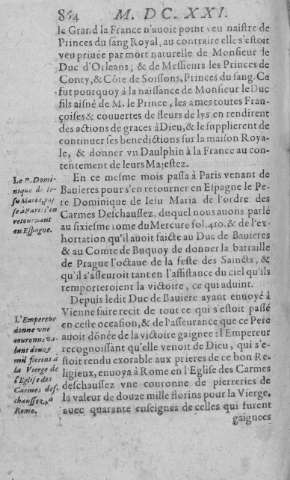 864 M. DC. XXI.
le Grand la France n'auoit point veu naistre de
Princes du sang Royal, au contraire elle s'estoit
veu priuée par mort naturelle de Monsieur le
Duc d'Orleans, & de Messieurs les Princes de
Conty, & Côte de Soissons, Princes du sang. Ce
fut pourquoy à la naissance de Monsieur le Duc
fils aisné de M. le Prince, les ames toutes Fran-
çoises & couuertes de fleurs de lys en rendirent
des actions de graces à Dieu, & le supplierent de
continuer ses benedictions sur la maison Roya-
le, & donner vn Daulphin à la France au con-
tentement de leurs Majestez.
Le P. Domi-
nique de Ie-
su Maria, pas-
se à Paris s'en
retournant
en Espagne.
En ce mesme mois passa à Paris venant de
Bauieres pour s'en retourner en Espagne le Pe-
re Dominique de Iesu Maria de l'ordre des
Carmes Deschaussez, duquel nous auons parlé
au sixiesme tome du Mercure fol. 410. & de l'ex-
hortation qu'il auoit faicte au Duc de Bauieres
& au Comte de Buquoy de donner la bataille
de Prague l'octaue de la feste des Saincts, &
qu'il s'asseuroit tant en l'assistance du ciel qu'ils
remporteroient la victoire, ce qui aduint.
L'Empereur
donne vne
couronne va-
lant douze
mil florins à
la Vierge de
l'Eglise des
Carmes des-
chaussez, à
Rome.
Depuis ledit Duc de Bauiere ayant enuoyé à
Vienne faire recit de tout ce qui s'estoit passé
en ceste occasion, & de l'asseurance que ce Pere
auoit dônée de la victoire gaignee: l'Empereur
recognoissant qu'elle venoit de Dieu, qui s'e-
stoit rendu exorable aux prieres de ce bon Re-
ligieux, enuoya à Rome en l'Eglise des Carmes
deschaussez vne couronne de pierreries de
la valeur de douze mille florins pour la Vierge,
auec quarante enseignes de celles qui furent
gaignees